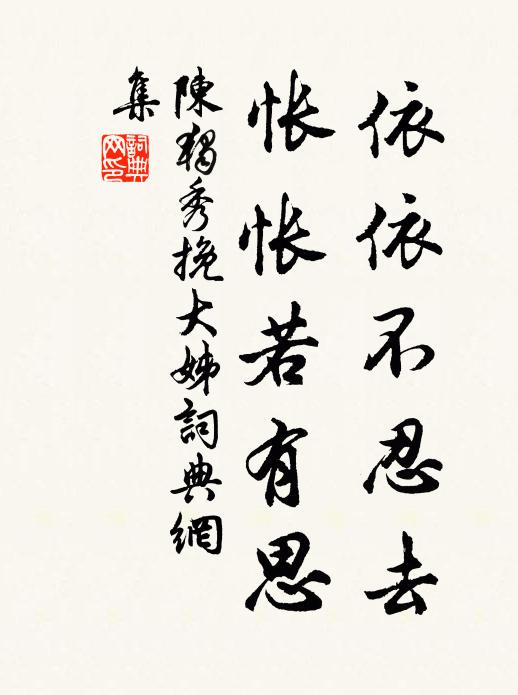 依依不忍去
悵悵若有思
陳獨秀挽大姊詞典網
集
詞典网印